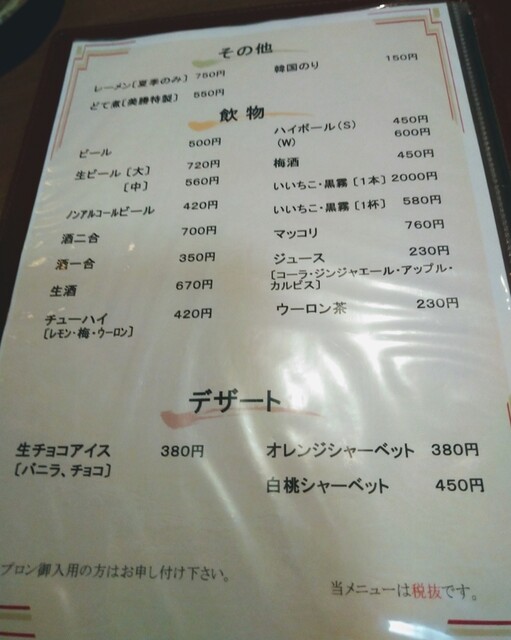 その他
レーメン〔夏季のみ〕 750円
韓国のり 150円
どて煮〔美勝特製〕 550円
飲物
ビール 500円
生ビール〔大〕 720円
〔中〕 560円
ノンアルコールビール 420円
酒二合 700円
酒一合 350円
生酒 670円
チューハイ 420円
〔レモン・梅・ウーロン〕
ハイボール(S) 450円
(W) 600円
梅酒 450円
いいちこ・黒霧〔1本〕 2000円
いいちこ・黒霧〔1杯〕 580円
マッコリ 760円
ジュース 230円
〔コーラ・ジンジャエール・アップル・
カルピス〕
ウーロン茶 230円
デザート
生チョコアイス 380円
〔バニラ、チョコ〕
オレンジシャーベット 380円
白桃シャーベット 450円
プロン御入用の方はお申し付け下さい。
当メニューは税抜です。